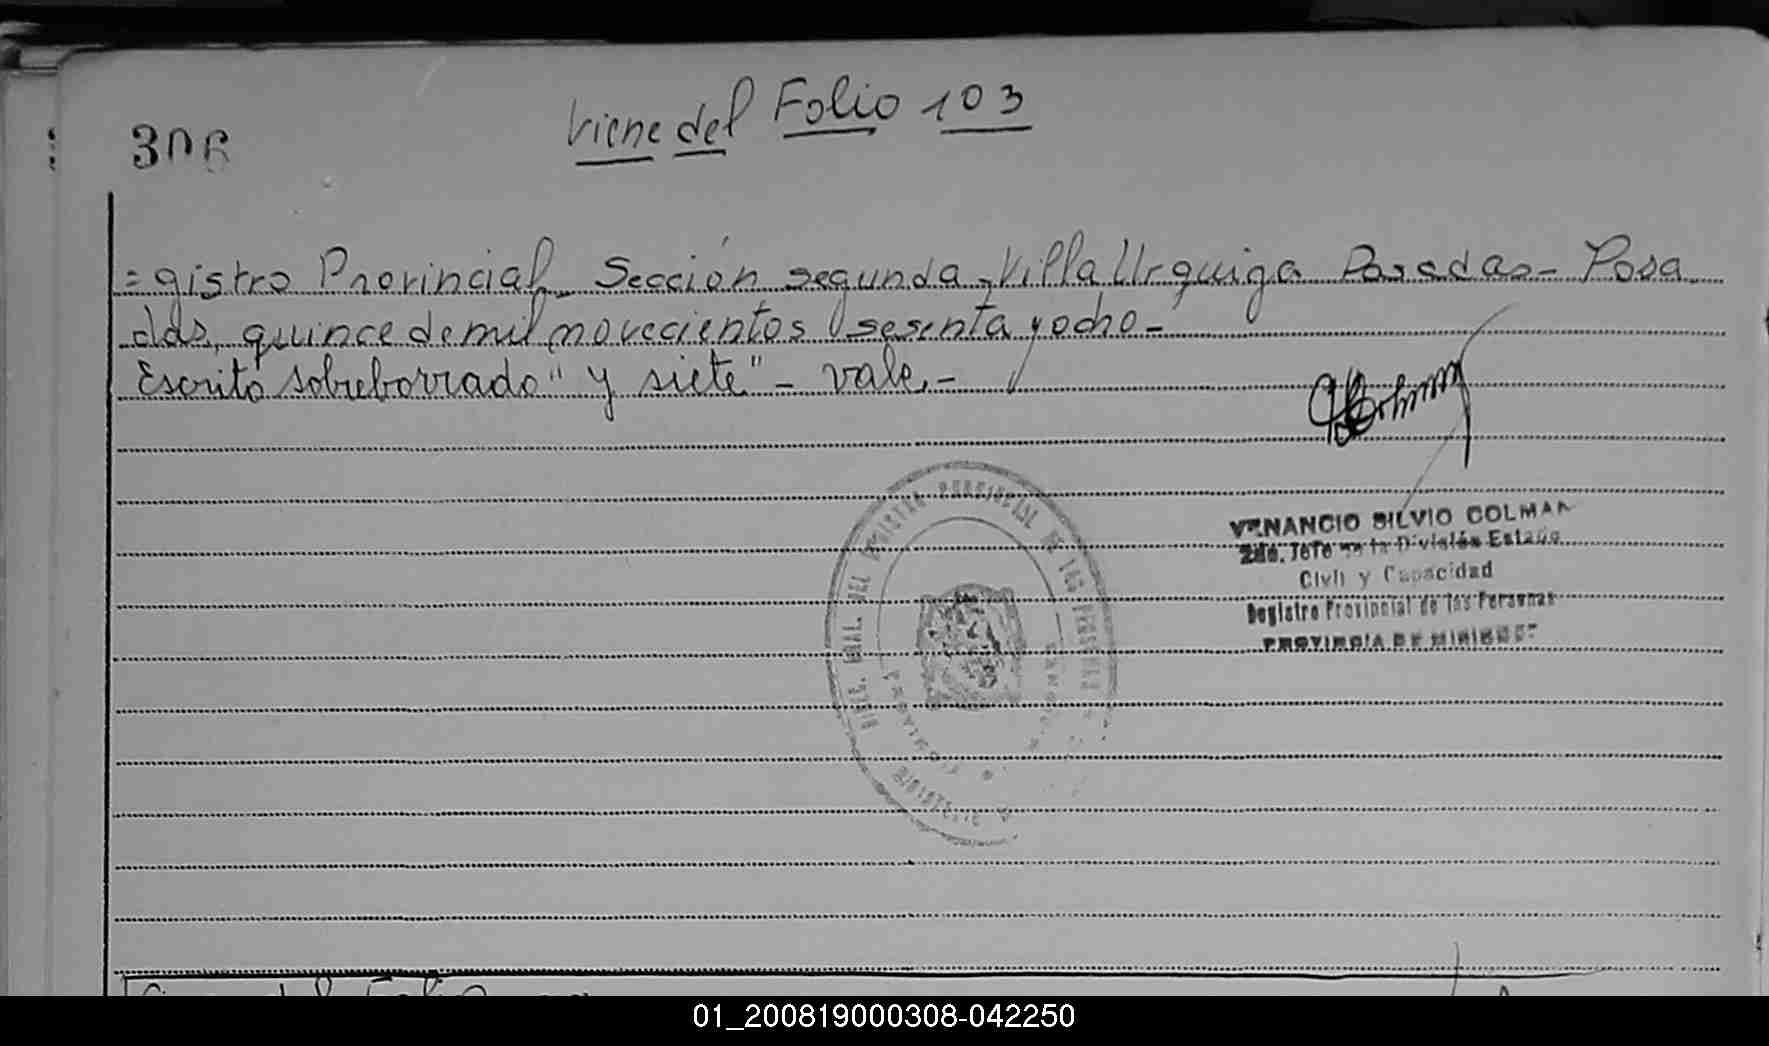 306
Viene del Folio 103
=gistro Provincial_ Sección segunda - Villa Urquiza Posadas - Posa
das, quince de mil novecientos sesenta y ocho -
Escrito sobreborrado "y siete" - vale.-
VENANCIO SILVIO COLMAN
2do. Jefe de la División Estado
Civil y Capacidad
Registro Provincial de las Personas
PROVINCIA DE MISIONES
DIREC. GRAL. DEL REGISTRO PROVINCIAL DE LAS PERSONAS
01_200819000308-042250